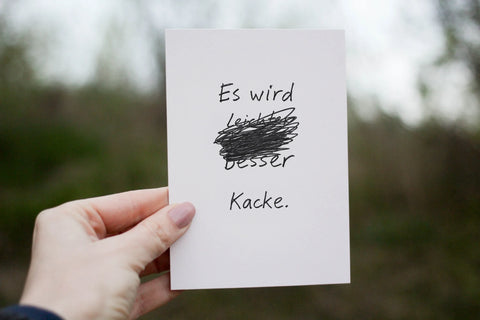 Es wird
Leichter
besser
Kacke.